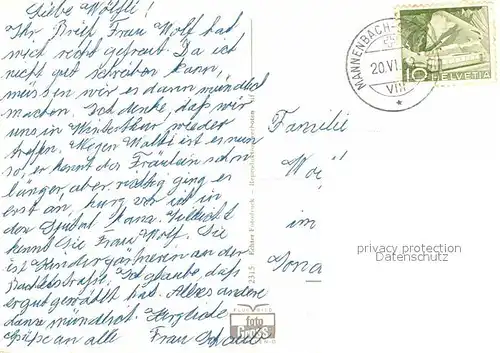 Liebe Wölfli!
Ihr Brief, Frau Wolf hat
mich recht gefreut. Da ich
nicht gut schreiben kann,
müssen wir es dann mündlich
machen. Ich denke, daß wir
uns in Winterthur wieder
treffen. Wegen Walti ist es nun
so, er kennt das Fräulein schon
länger, aber richtig ging es
erst an, kurz vor ich in
den Spital kam. Vielleicht
kennt Sie Frau Wolf. Sie
ist Kindergärtnerin an der
Bachtelstraße. Ich glaube, daß
er gut gewählt hat. Alles andere
dann mündlich. Herzliche
Grüße an alle Frau
MANNENBACH
20.VI
VIII
10
HELVETIA
Familie
im
privacy protection
2315 Echter Fotodruck
foto
Gross